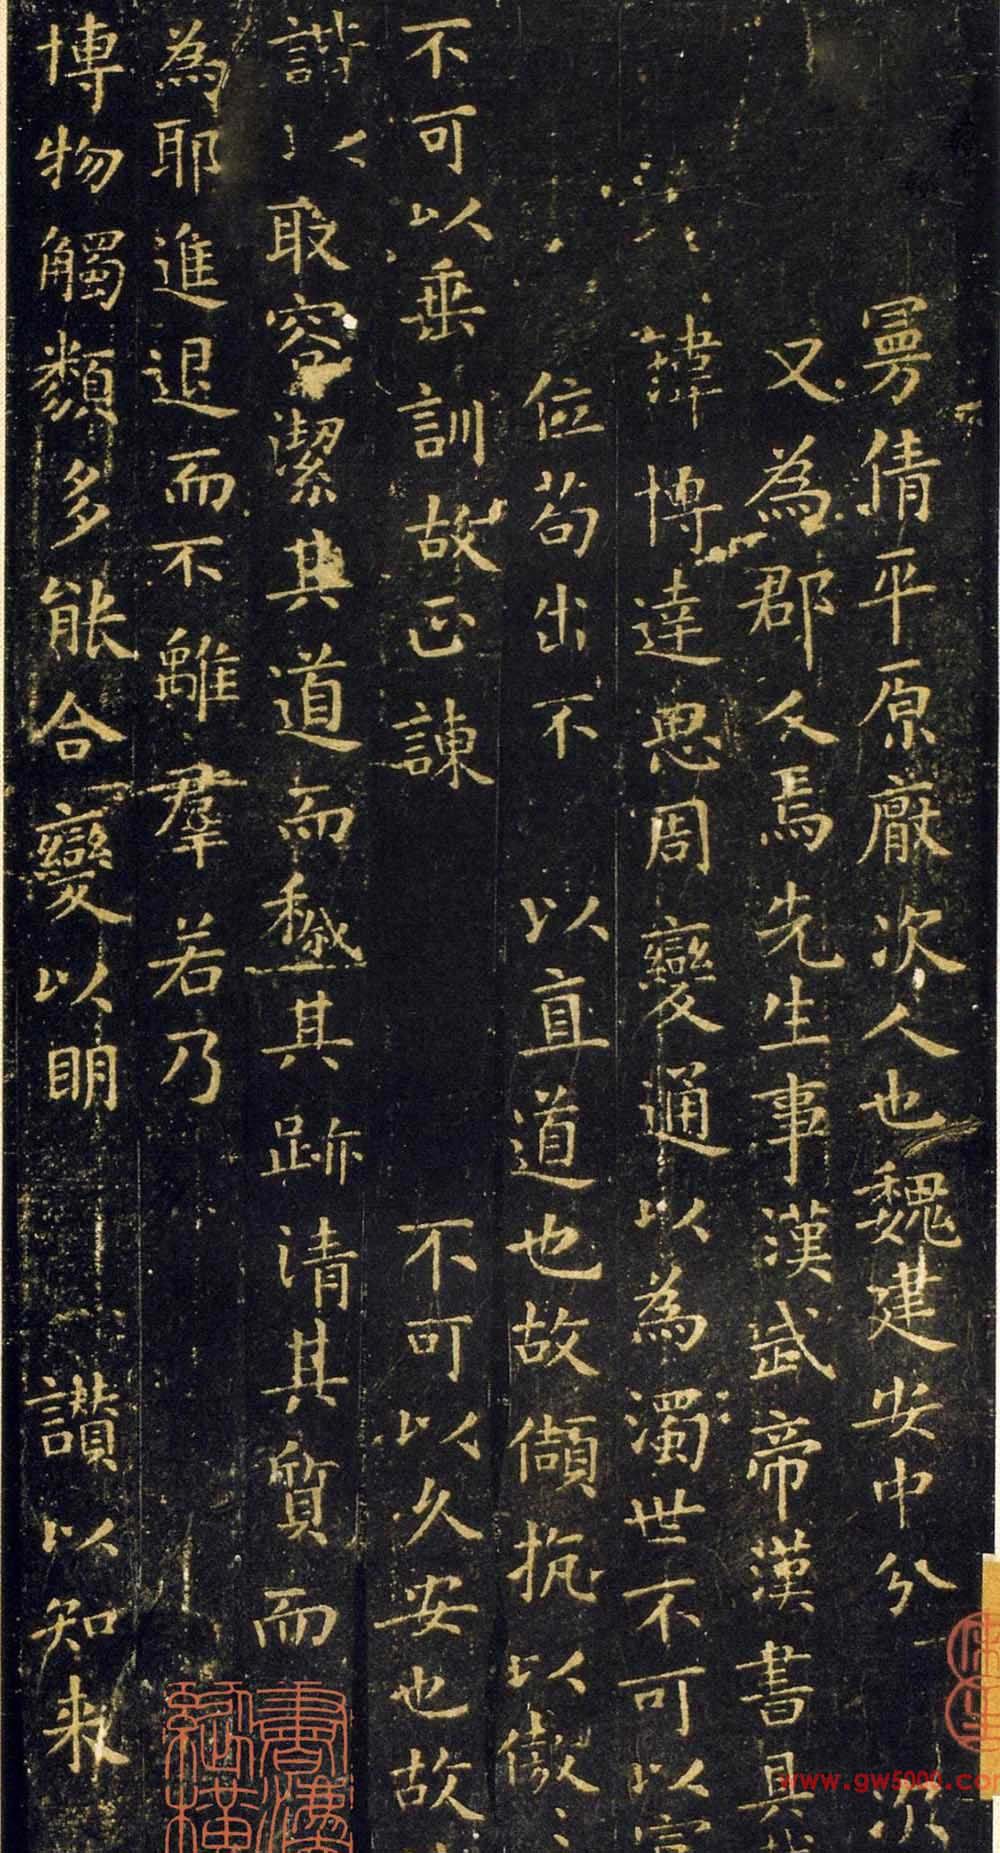 曼倩平原厭次人也魏建安中分次
又為郡人焉先生事漢武帝漢書具
諱博達思周變通以為濁世不可以富
位苟出不以直道也故頡抗以傲
不可以垂訓故正諫不可以久安也故
諧以取容潔其道而穢其跡清其質而
為耶進退而不離羣若乃
博物觸類多能合變以明讚以知来
www.gw5000.co